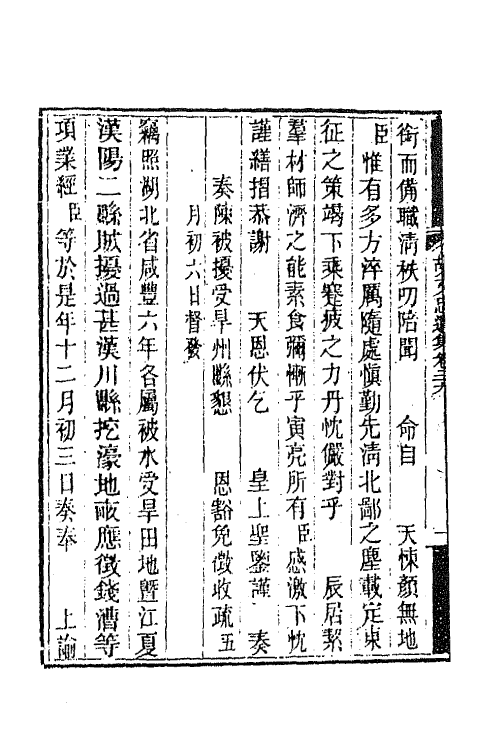 銜而備職清秩叨陪聞　命自　天悚顏無地
臣惟有多方淬厲隨處愼勤先淸北鄙之塵載定東
征之策竭下乘蹇疲之力丹忱儼對乎　宸居絜
羣材師濟之能素食彌慚乎寅亮所有臣感激下忱
謹繕摺恭謝　天恩伏乞　皇上聖鑒謹　奏
奏陳被擾受旱州縣懇　恩豁免徵收疏五
月初六日督發
竊照湖北省咸豐六年各屬被水受旱田地曁江夏
漢陽二縣賊擾過甚漢川縣挖濠地畝應徵錢漕等
項業經臣等於是年十二月初三日奏奉　上諭